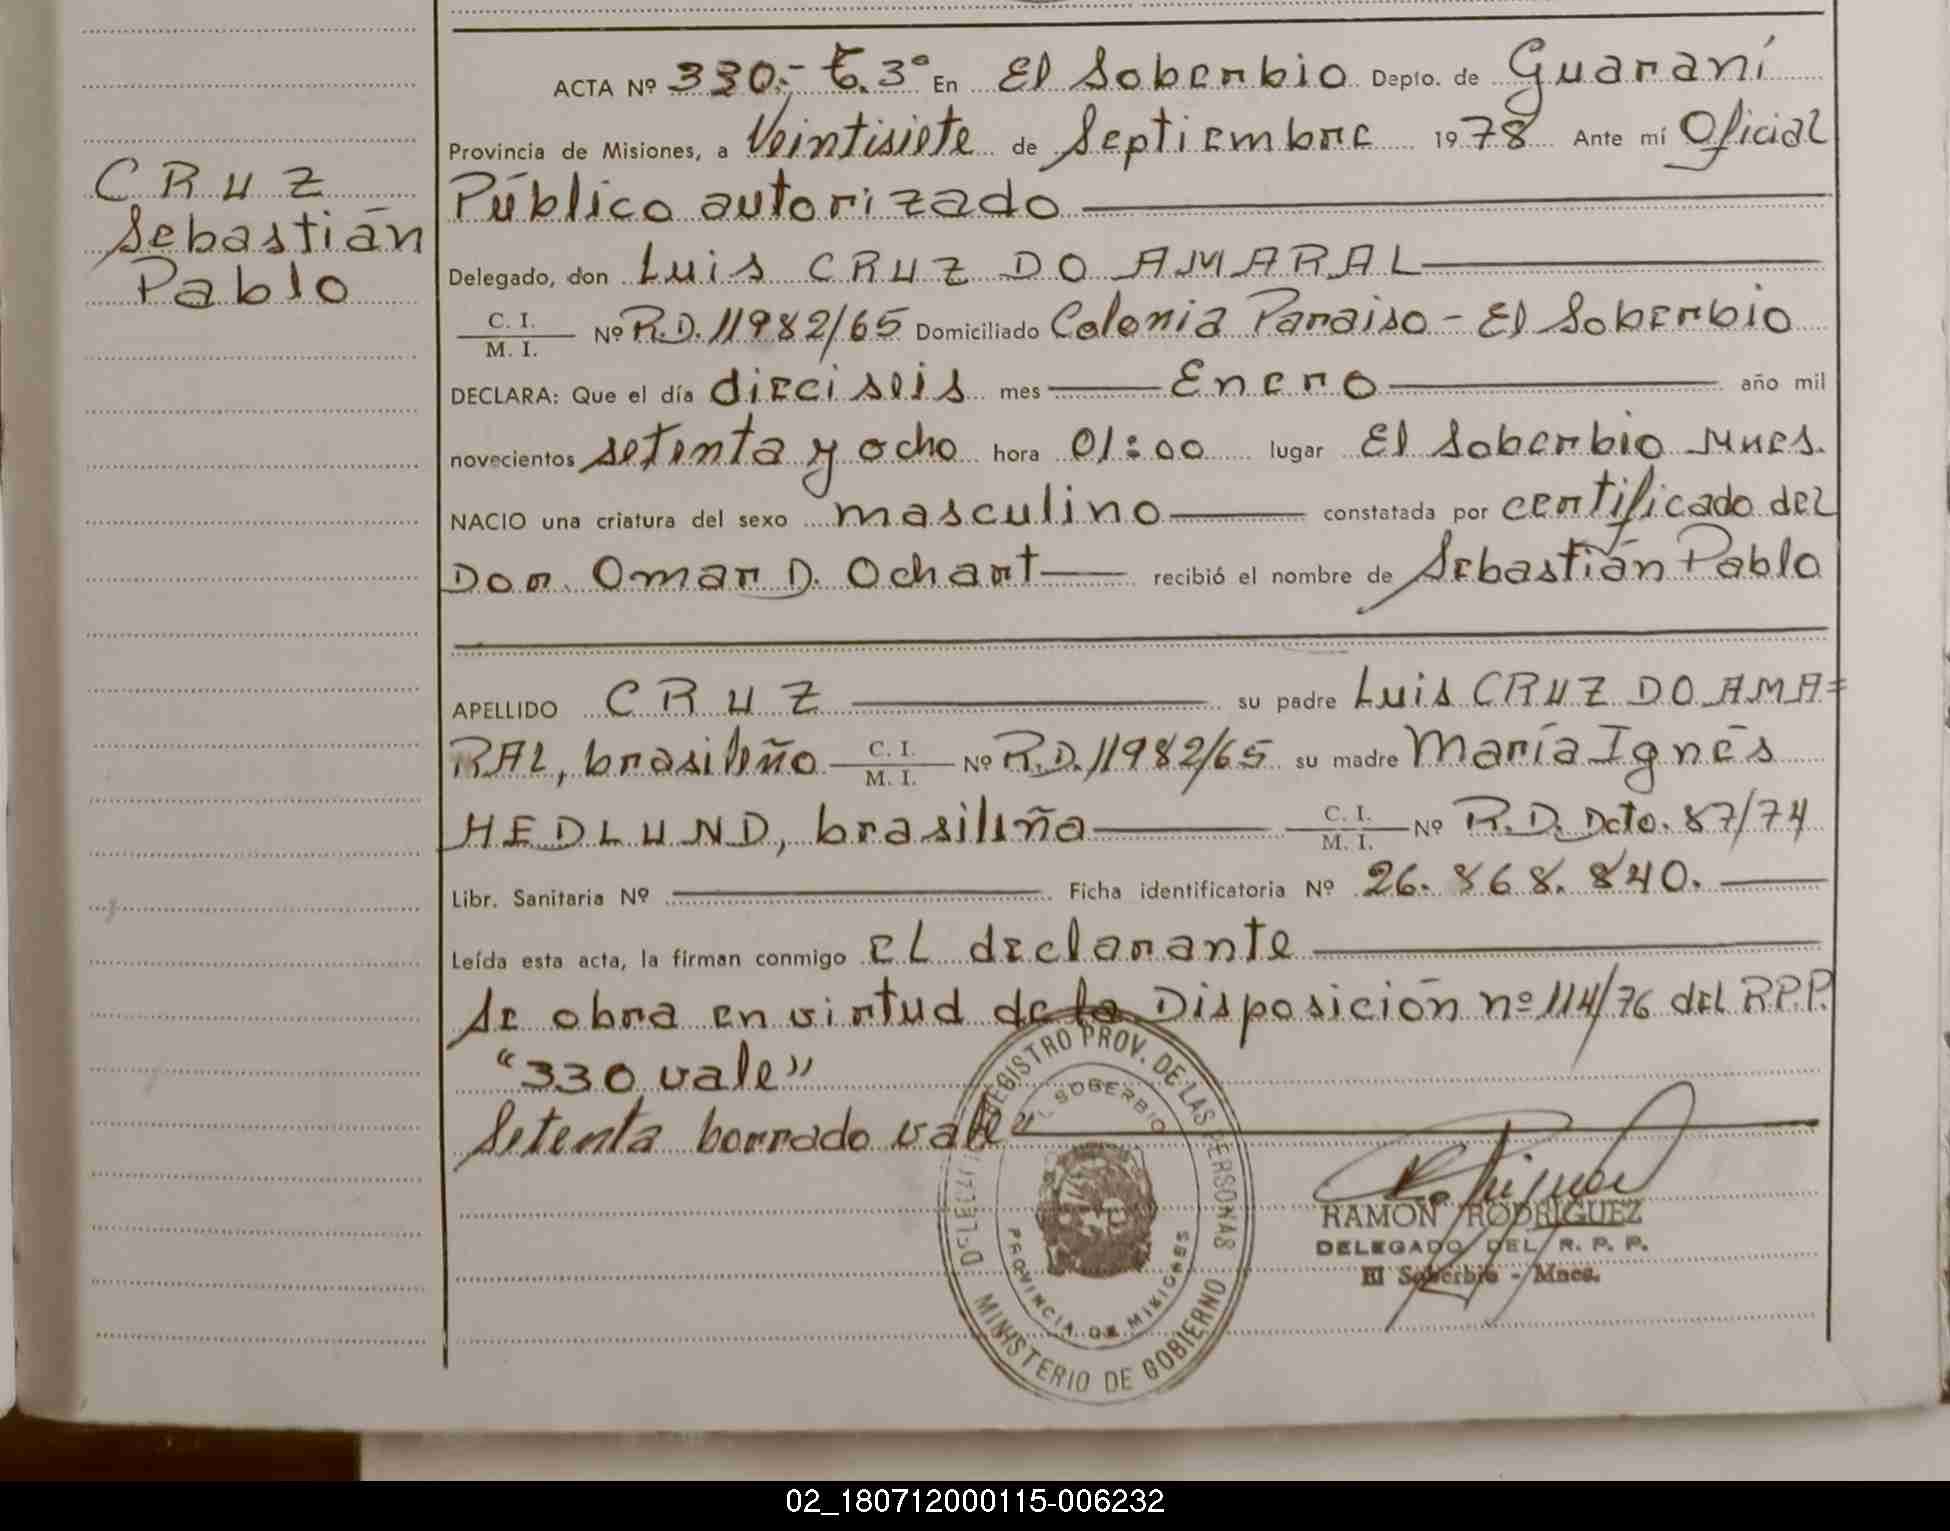 CRUZ
Sebastián
Pablo
ACTA Nº 330.- T.3º En El Soberbio Depto. de Guaraní
Provincia de Misiones, a Veintisiete de Septiembre 1978 Ante mí Oficial
Público autorizado
Delegado, don Luis CRUZ DO AMARAL
C. I.
M. I. Nº R.D. 11982/65 Domiciliado Colonia Paraiso - El Soberbio
DECLARA: Que el día dieciseis mes Enero año mil
novecientos setenta y ocho hora 01:00 lugar El Soberbio Mnes.
NACIO una criatura del sexo masculino constatada por certificado del
Dor. Omar D. Ochart recibió el nombre de Sebastián Pablo
APELLIDO CRUZ su padre Luis CRUZ DO AMA=
RAL, brasileño C. I. M. I. Nº R.D. 11982/65 su madre María Ignés
HEDLUND, brasileña C. I. M. I. Nº R.D. Dcto. 87/74
Libr. Sanitaria Nº Ficha identificatoria Nº 26.868.840.
Leída esta acta, la firman conmigo el declarante
Se obra en virtud de la Disposición nº 114/76 del R.P.P.
"330 vale"
Setenta borrado vale"
REGISTRO PROV. DE LAS PERSONAS
EL SOBERBIO
PROVINCIA DE MISIONES
MINISTERIO DE GOBIERNO
RAMON RODRIGUEZ
DELEGADO DEL R. P. P.
El Soberbio - Mnes.
02_180712000115-006232